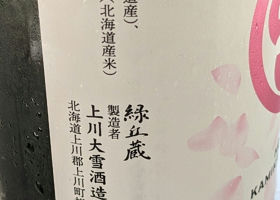 遺産)、
北海道産米)
緑丘蔵
製造者
上川大雪酒造
北海道上川郡上川町
KAMI